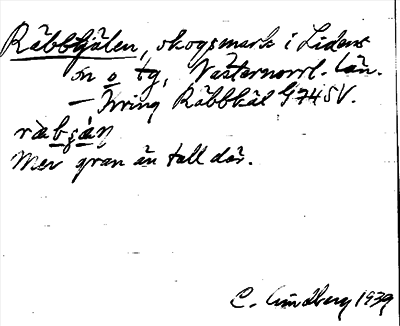 Räbbtjälen, skogsmark i Lidens
sn o tg, Västernorrl. län.
— Kring Räbbkäl G 74 SV.
Mer gran än tall där.
C. Lindberg 1939